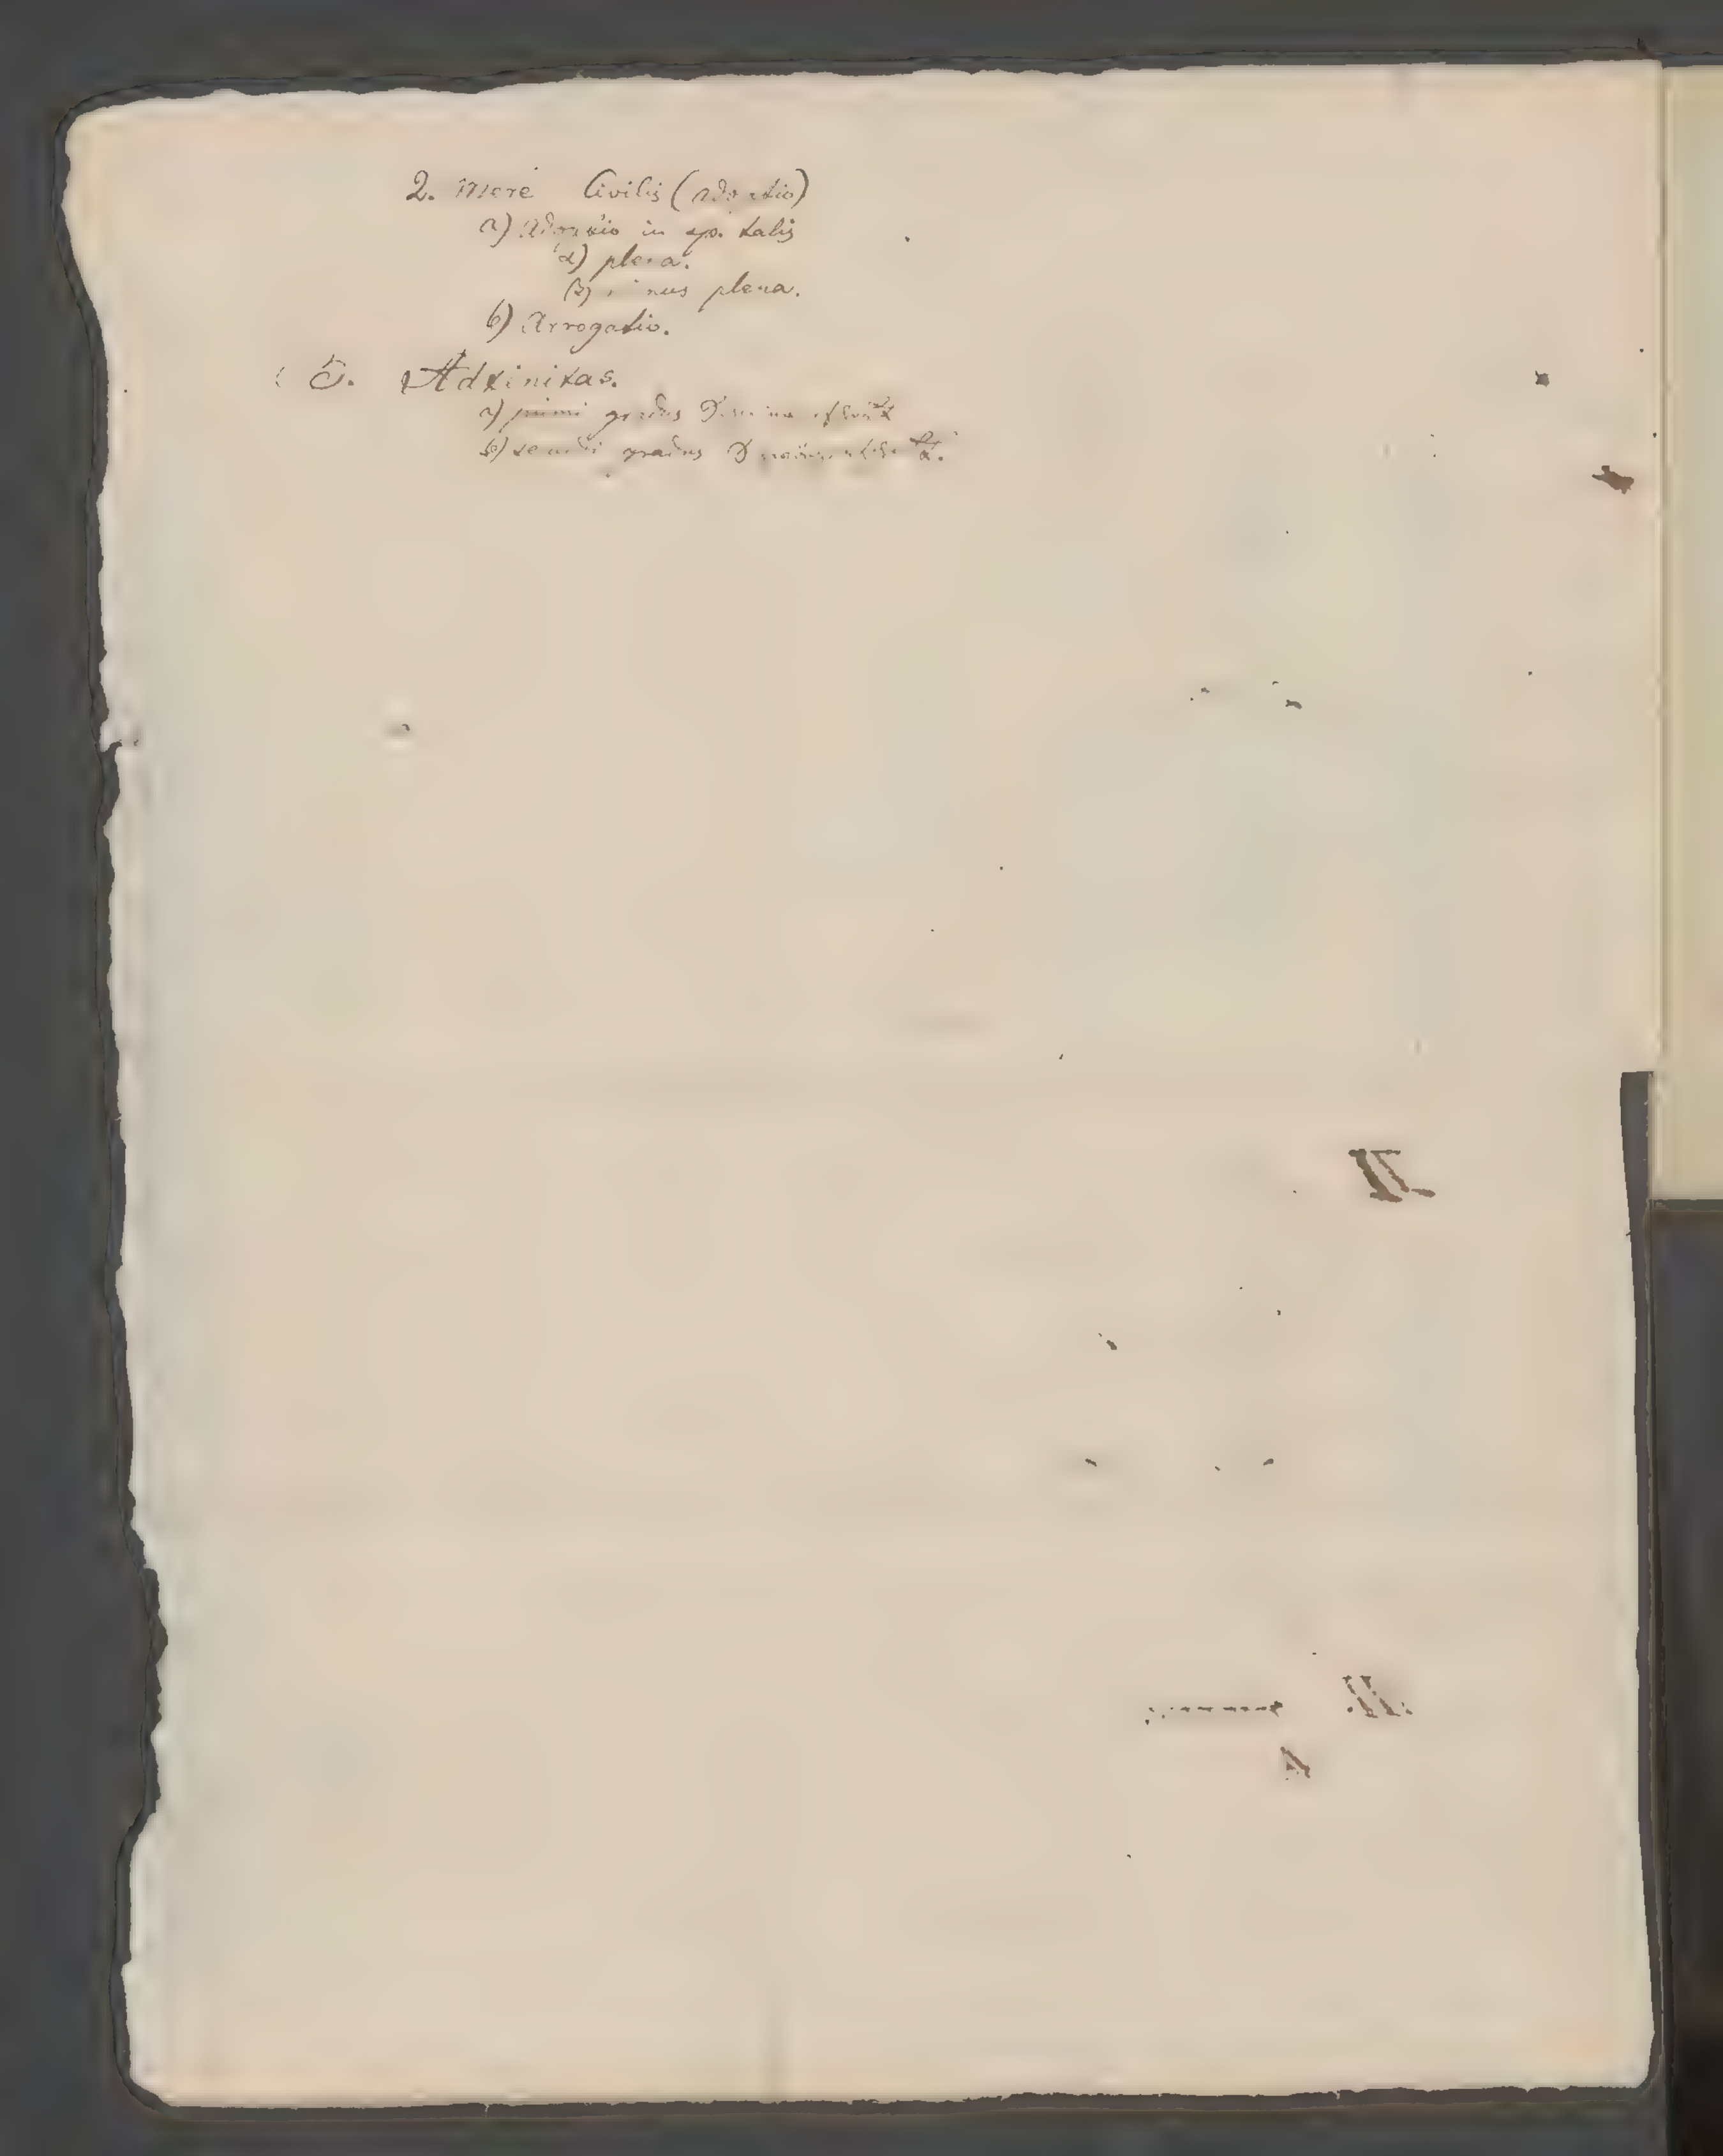 2. mere Civilis (adoptio)
a) Adoptio in sp. talis
α) plena.
β) minus plena.
b) Arrogatio.
C. Adfinitas.
a) primi gradus
b) secundi gradus